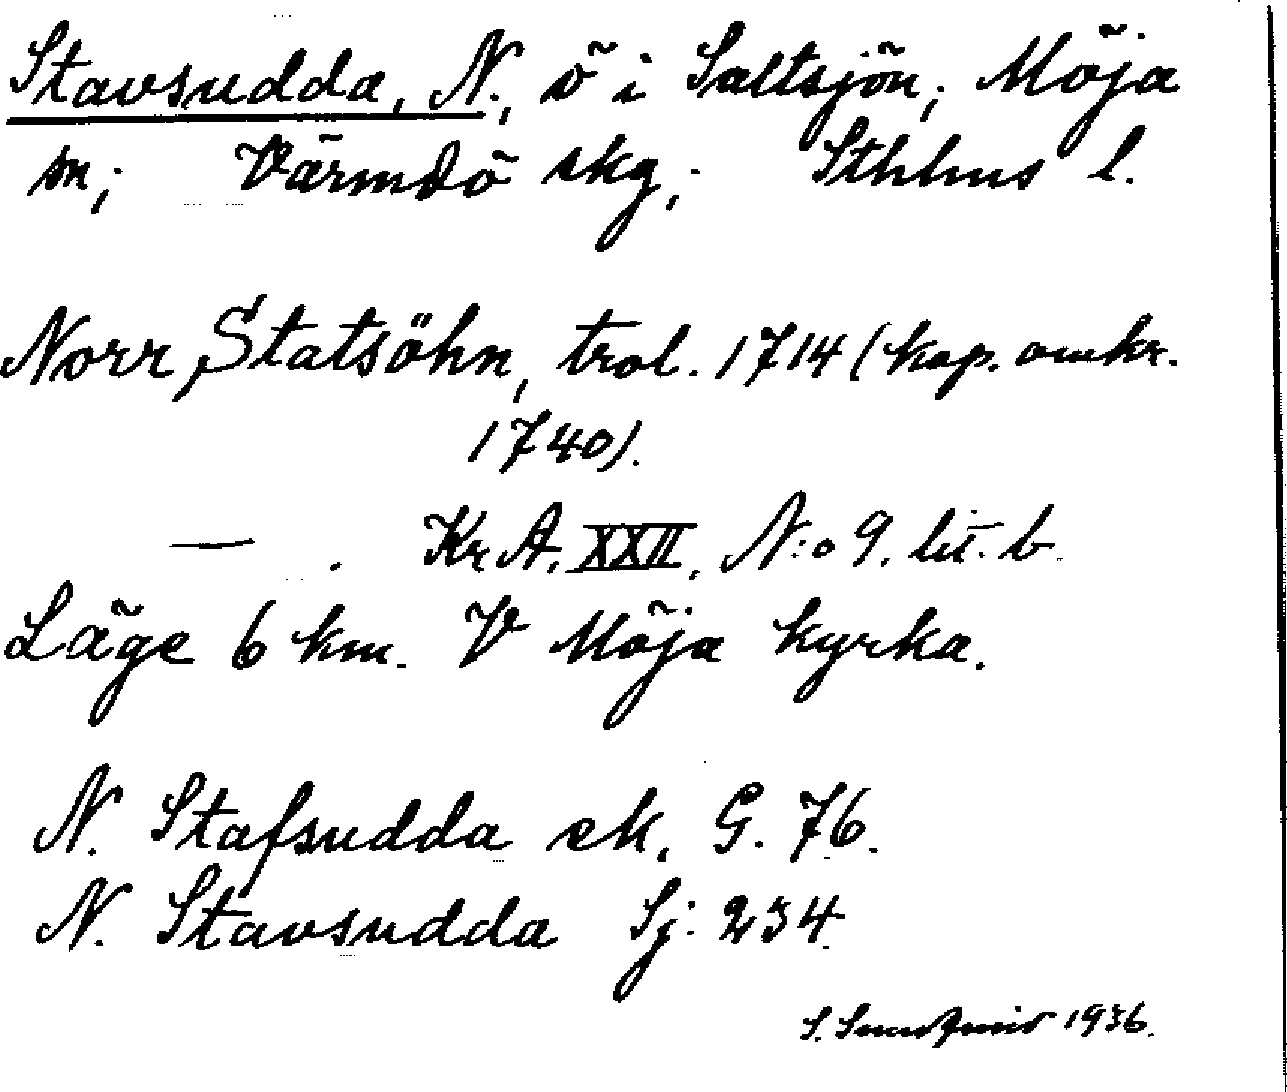 Stavsudda, N., ö i Saltsjön; Möja
sn; Värmdö skg; Sthlms l.
Norr Statsöhn, trol. 1714 (kop. omkr.
1740).
— . Kr A. XXII, N:o 9. lit. b
Läge 6 km. V Möja kyrka.
N. Stafsudda ek. G. 76.
N. Stavsudda Sj: 234
S. 1936.